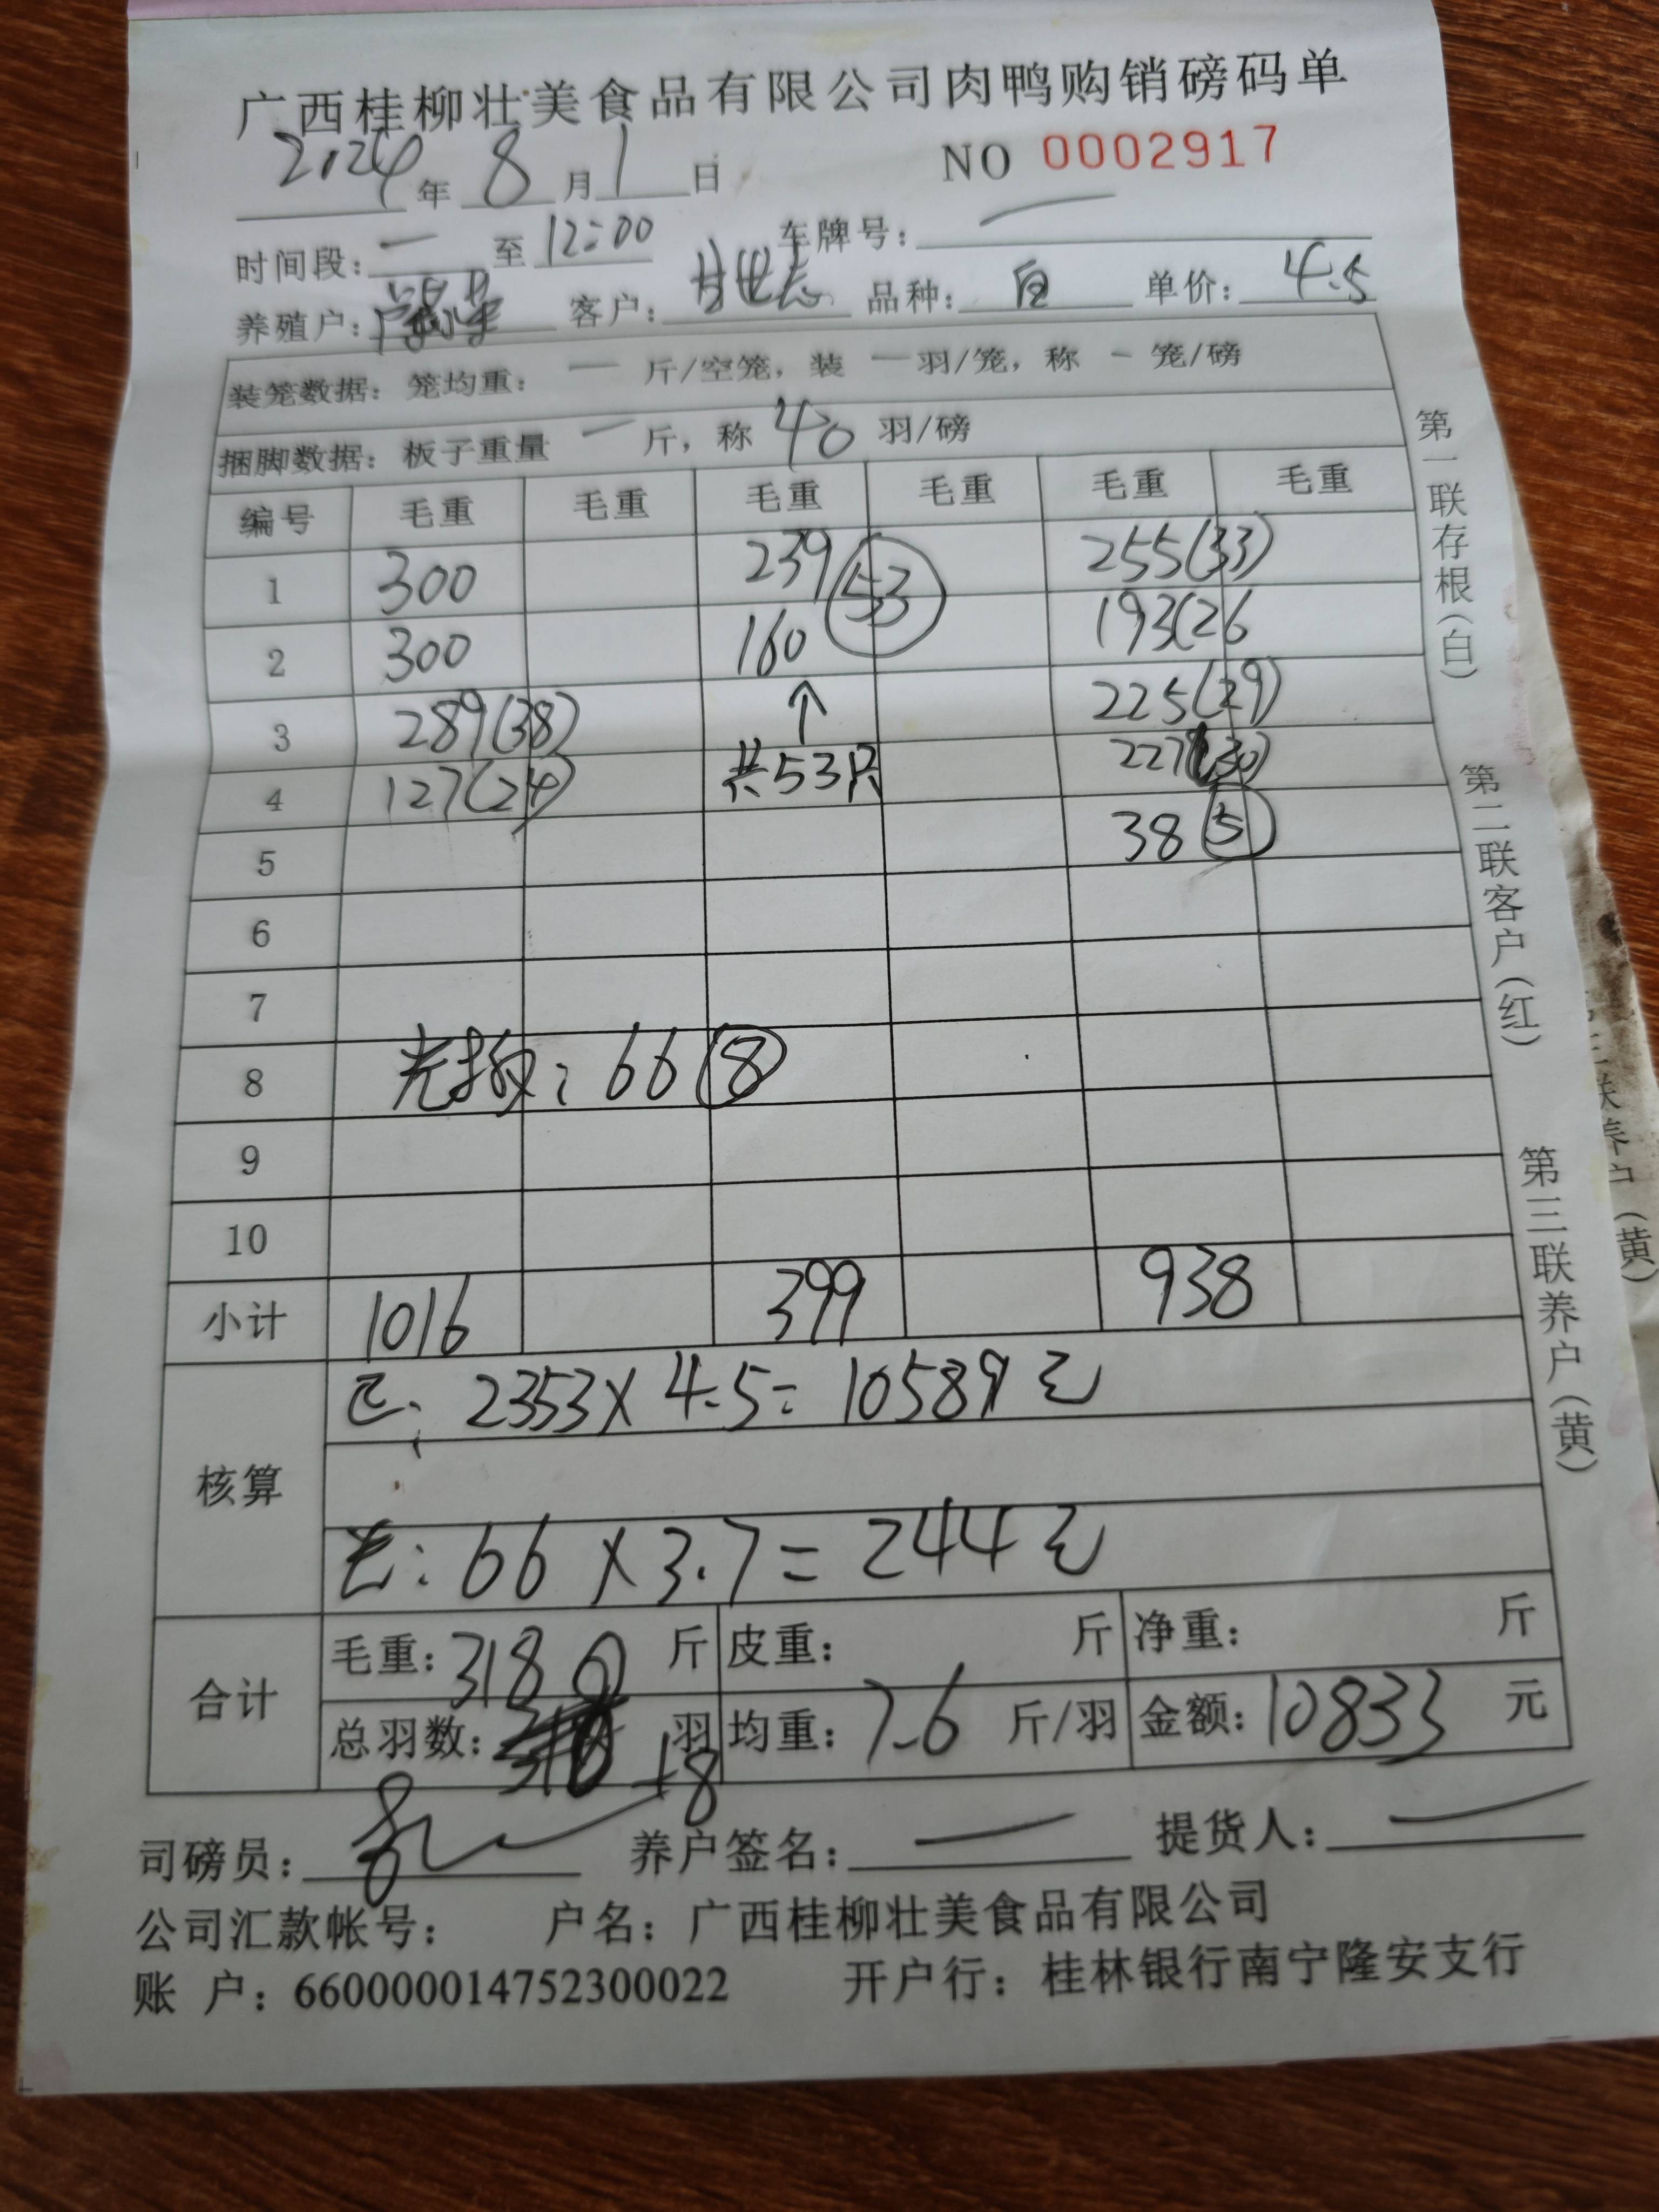 广西桂柳壮美食品有限公司肉鸭购销磅码单
2024年8月1日 NO 0002917
时间段:一至12:00 车牌号:一
养殖户: 客户: 品种:白 单价:4.5
装笼数据:笼均重:一斤/空笼,装一羽/笼,称-笼/磅
捆脚数据:板子重量一斤,称40羽/磅
编号 毛重 毛重 毛重 毛重 毛重 毛重
1 300 239 (53) 255(33)
2 300 160 193(26
3 289(38) ↑ 225(29)
4 127(24) 共53只 227(30)
5 38(5)
6
7
8 66(8)
9
10
小计 1016 399 938
核算 2353×4.5=10589元
:66×3.7=244元
合计 毛重:3180斤 皮重:斤 净重:斤
总羽数:+8羽 均重:7.6斤/羽 金额:10833元
司磅员: 养户签名:一 提货人:一
公司汇款帐号: 户名:广西桂柳壮美食品有限公司
账 户:660000014752300022 开户行:桂林银行南宁隆安支行
第一联存根(白)
第二联客户(红)
第三联养户(黄)
联养户(黄)